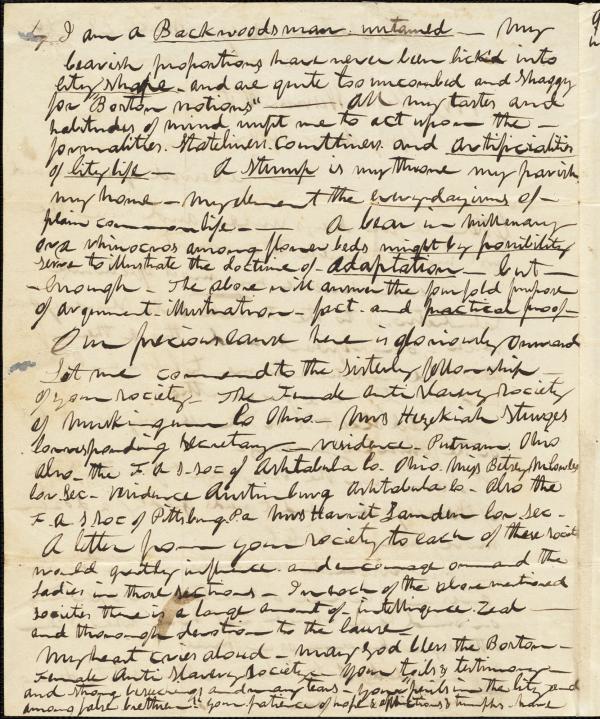 by I am a Backwoodsman untamed — My
bearish proportions have never been licked into
city shape. and are quite too uncombed and shaggy
for "Boston notions" — All my tastes and
habitudes of mind unfit me to act upon the —
formalities. Stateliness. Courtliness. and artificialities
of city life — A stump is my throne my parish
my home — my element the everydayisms of —
plain common life — A bear in millenary
or a rhinocros among flower beds might by possibility
serve to illustrate the doctrine of adaptation — but —
enough — The above will answer the four fold purpose
of argument. illustration — fact. and practical proof —
Our precious cause here is gloriously onward
Let me commend to the sisterly fellowship
of your society — The Female Anti Slavery Society
of Muskingum Co Ohio — Mrs Hezekiah Sturges
Corresponding Secretary — residence. Putnam. Ohio
Also the F. A S. Soc of Ashtabula Co. Ohio. Miss Betsey
Cor. Sec — residence Austinburg Ashtabula Co — Also the
F. A S Soc of Pittsburg Pa Mrs Harriet Cor. Sec —
A letter from your society to each of these societ
would greatly influence. and encourage onward the
Ladies in those sections — In each of the above mentioned
societies there is a large amount of intelligence. Zeal —
and thorough devotion to the cause —
My heart cries aloud — may God bless the Boston —
Female Anti Slavery Society — Your toils & testimony —
and strong and many tears — your "perils in the city and
among false brethren" your patience of hope & & triumphs. have